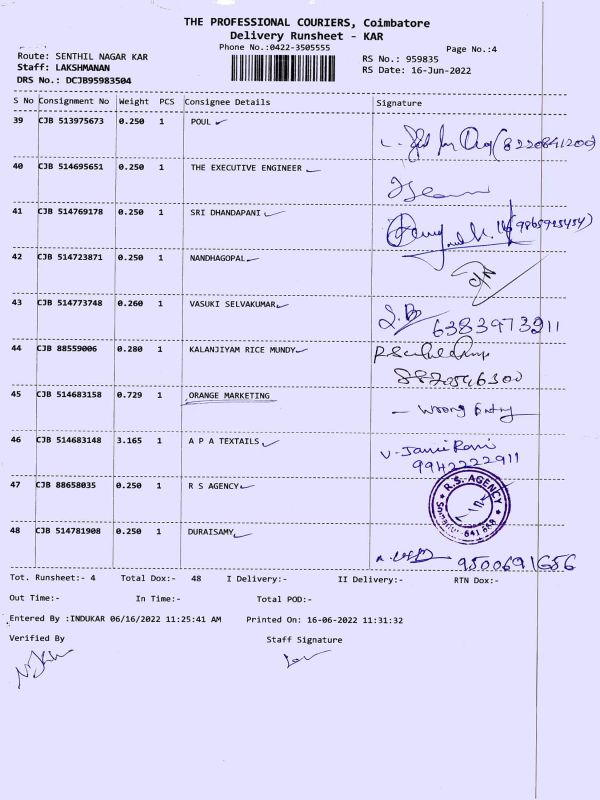 THE PROFESSIONAL COURIERS, Coimbatore
Delivery Runsheet - KAR
Phone No.:0422-3505555
Page No.:4
Route: SENTHIL NAGAR KAR
RS No.: 959835
Staff: LAKSHMANAN
RS Date: 16-Jun-2022
DRS No.: DCJB95983504
S No Consignment No Weight PCS Consignee Details Signature
39 CJB 513975673 0.250 1 POUL
40 CJB 514695651 0.250 1 THE EXECUTIVE ENGINEER
41 CJB 514769178 0.250 1 SRI DHANDAPANI
42 CJB 514723871 0.250 1 NANDHAGOPAL
43 CJB 514773748 0.260 1 VASUKI SELVAKUMAR
6383973211
44 CJB 88559006 0.280 1 KALANJIYAM RICE MUNDY
45 CJB 514683158 0.729 1 ORANGE MARKETING
- Wrong Entry
46 CJB 514683148 3.165 1 A P A TEXTAILS
9942222911
47 CJB 88658035 0.250 1 R S AGENCY
R.S. AGENCY
48 CJB 514781908 0.250 1 DURAISAMY
9500691656
Tot. Runsheet:- 4 Total Dox:- 48 I Delivery:- II Delivery:- RTN Dox:-
Out Time:- In Time:- Total POD:-
Entered By :INDUKAR 06/16/2022 11:25:41 AM Printed On: 16-06-2022 11:31:32
Verified By Staff Signature